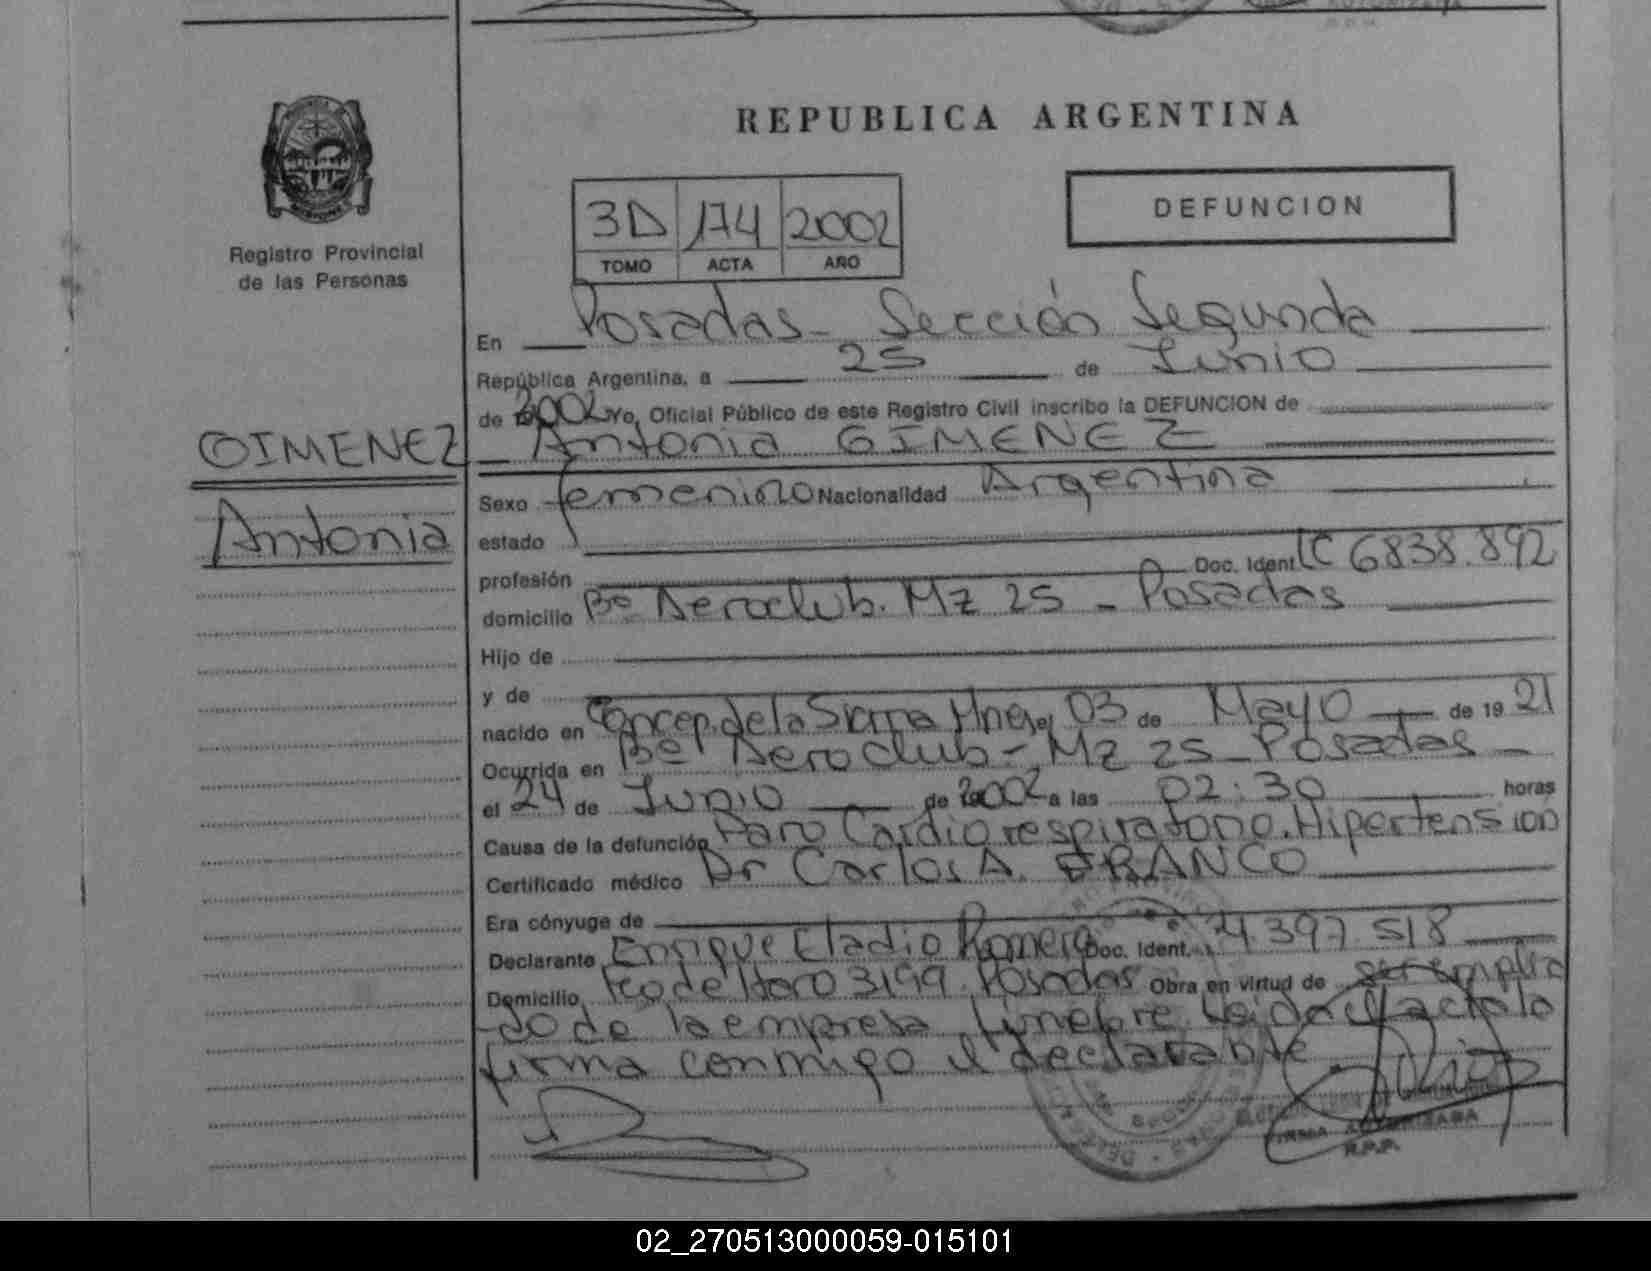 REPUBLICA ARGENTINA
3D 174 2002
TOMO ACTA AÑO
DEFUNCION
Registro Provincial
de las Personas
En Posadas - Sección Segunda
República Argentina, a 25 de Junio
de 2002 Yo, Oficial Público de este Registro Civil inscribo la DEFUNCION de
GIMENEZ
Antonia
Antonia GIMENEZ
Sexo femenino Nacionalidad Argentina
estado
profesión Doc. Ident. LC 6838.892
domicilio Bº Aeroclub. Mz 25 - Posadas
Hijo de
y de
nacido en Concep. de la Sierra Mnes, el 03 de Mayo de 1921
Ocurrida en Bº Aeroclub - Mz 25 - Posadas -
el 24 de Junio de 2002 a las 02:30 horas
Causa de la defunción Paro Cardiorespiratorio. Hipertension
Certificado médico Dr Carlos A. FRANCO
Era cónyuge de
Declarante Enrique Eladio Romero Doc. Ident. 4.397.518
Domicilio Fco de Haro 3199. Posadas Obra en virtud de ser emplea
do de la empresa funebre. Leida el acta lo
firma conmigo el declarante
FIRMA AUTORIZADA
R.P.P.
02_270513000059-015101